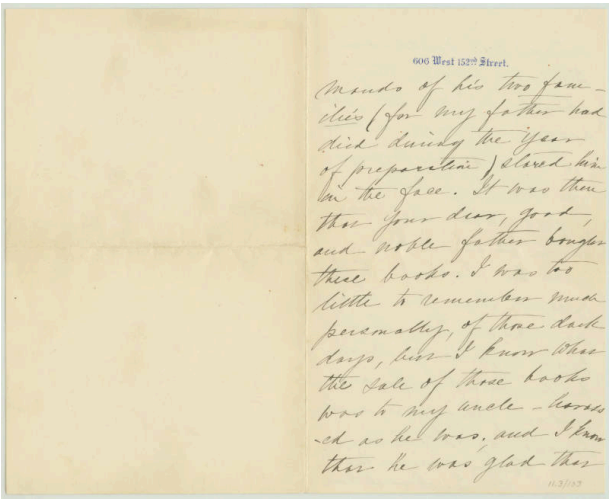 606 West 152nd Street.
mands of his two fam-
ilies (for my father had
died during the year
of preparation) stared him
in the face. It was then
that your dear, good,
and noble father bought
these books. I was too
little to remember much
personally, of those dark
days, but I know what
the sale of those books
was to my uncle - harass
-ed as he was; and I know
that he was glad that